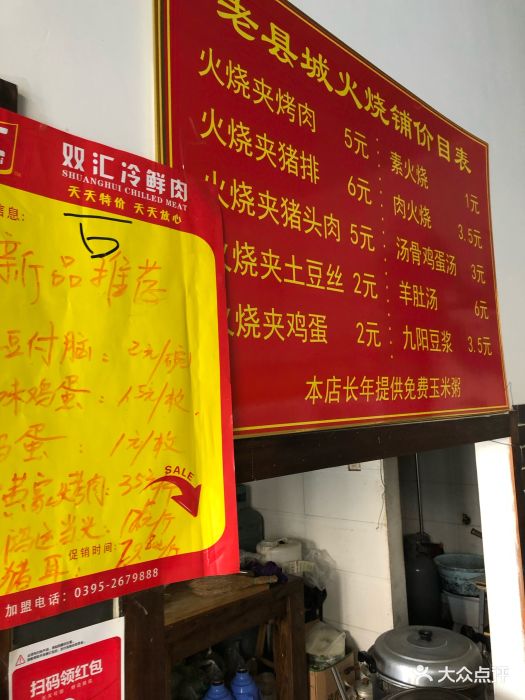 老县城火烧铺价目表
火烧夹烤肉 5元
火烧夹猪排 6元
火烧夹猪头肉 5元
火烧夹土豆丝 2元
火烧夹鸡蛋 2元
素火烧 1元
肉火烧 3.5元
汤骨鸡蛋汤 3元
羊肚汤 6元
九阳豆浆 3.5元
本店长年提供免费玉米粥
双汇冷鲜肉
SHUANGHUI CHILLED MEAT
天天特价 天天放心
信息:
新品推荐
豆付脑: 2元/碗
味鸡蛋: 1.5元/枚
鸡蛋: 1元/枚
黄家烤肉: 35元/斤
鸿运当头:
猪耳:
SALE
促销时间:
加盟电话: 0395-2679888
扫码领红包
大众点评